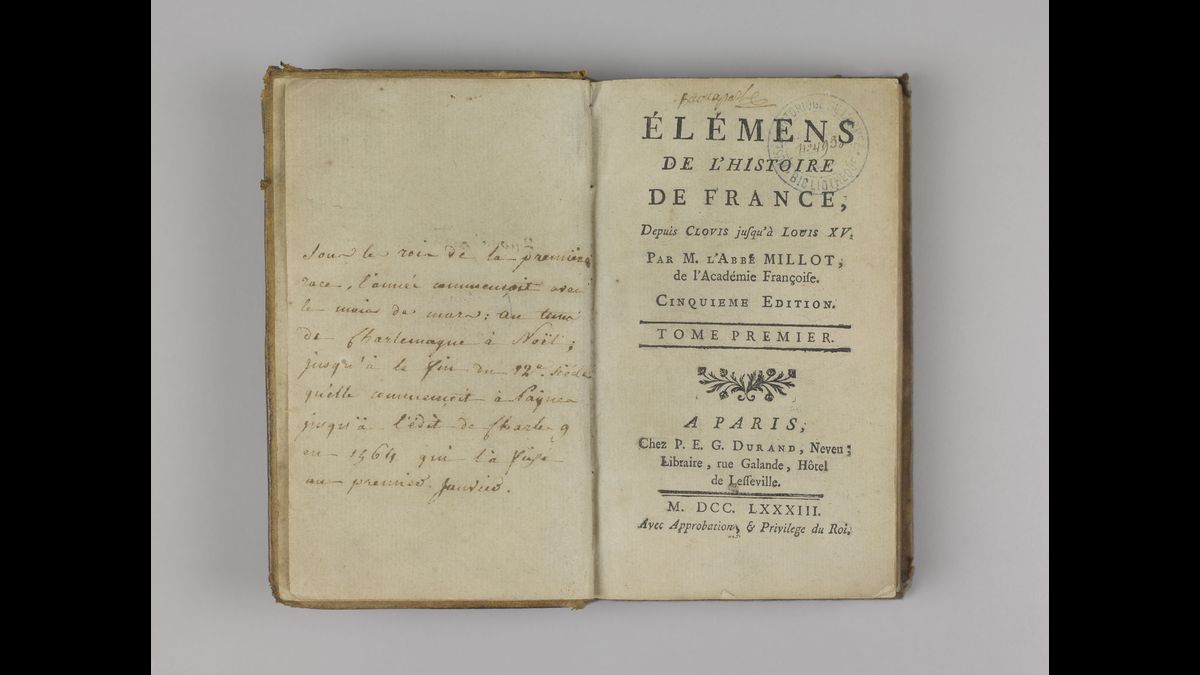 Sous le rois de la premiere
race, l'année commensoit avec
le mois de mars; au tems
de Charlemagne à Noël;
jusqu'à la fin du 12e siècle
qu'elle commensoit à Paques
jusqu'à l'édit de Charle 9
en 1564 qui l'a fixé
au premier Janvier.
ÉLÉMENS
DE L'HISTOIRE
DE FRANCE,
Depuis CLOVIS juſqu'à LOUIS XV.
PAR M. L'ABBÉ MILLOT,
de l'Académie Françoiſe.
CINQUIEME EDITION.
TOME PREMIER.
A PARIS,
Chez P. E. G. DURAND, Neveu;
Libraire, rue Galande, Hôtel
de Leſſeville.
M. DCC. LXXXIII.
Avec Approbation, & Privilege du Roi.
BIBLIOTHEQUE